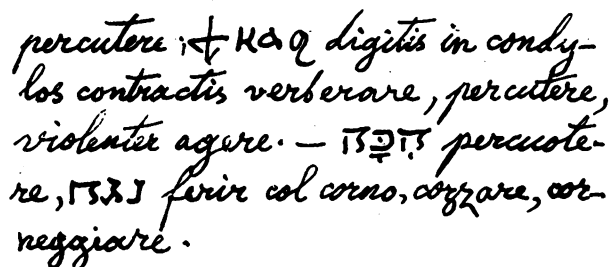 percutere; digitis in condy-
los contractis verberare, percutere,
violenter agere. — הִכָּה percuote-
re, נגח ferir col corno, cozzare, cor-
neggiare.